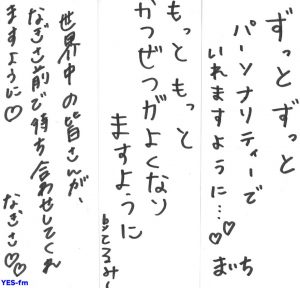 ずっと ずっと
パーソナリティーで
いれますように…♡♡
まいち
もっと もっと
かつぜつがよくなり
ますように
byてるみん
世界中の皆さんが、
なぎさ前で待ち合わせしてくれ
ますように♡
なぎさ♡♡
YES-fm